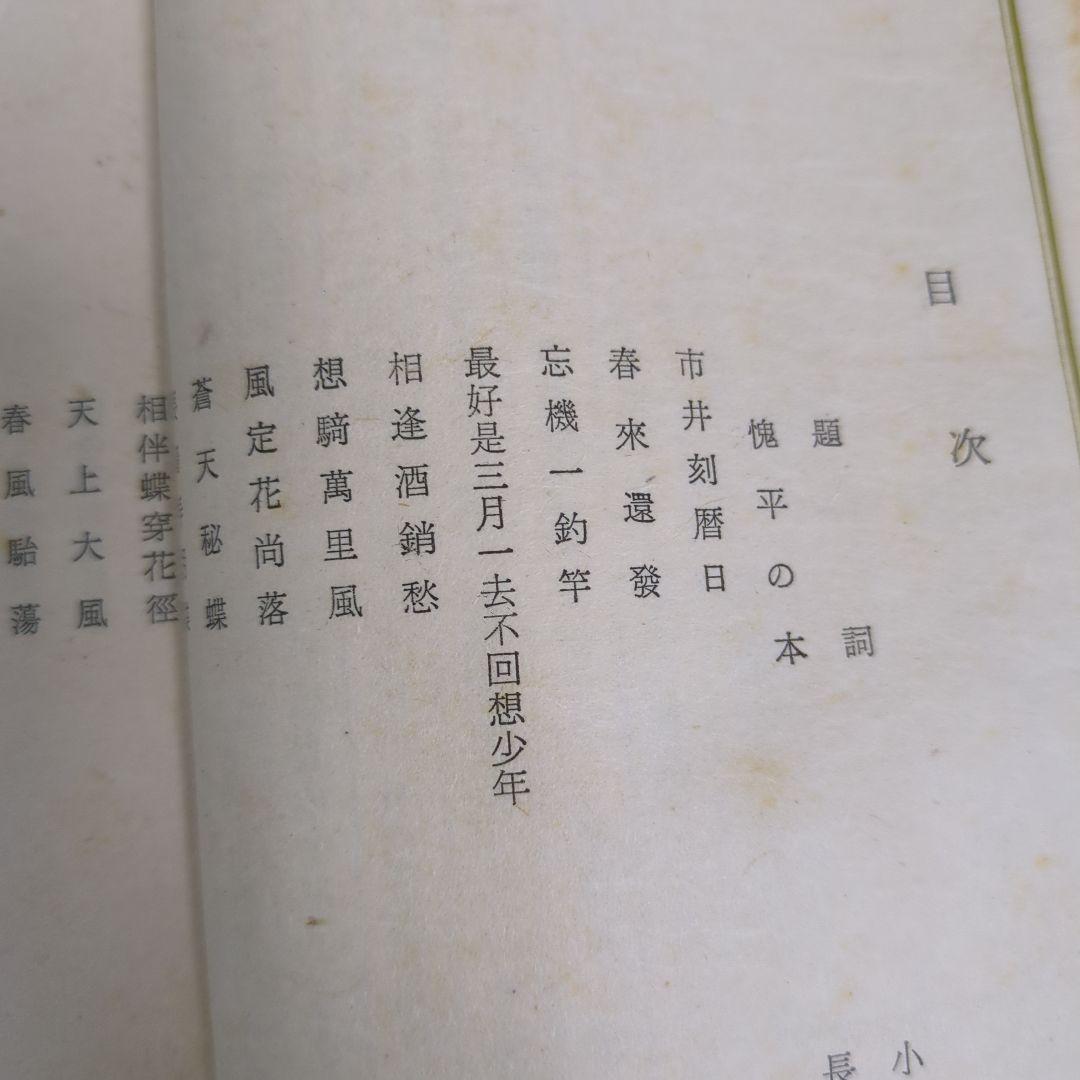 目次
題詞
小
愧平の本
長
市井刻暦日
春來還發
忘機一釣竿
最好是三月一去不回想少年
相逢酒銷愁
想騎萬里風
風定花尚落
蒼天秘蝶
相伴蝶穿花徑
天上大風
春風駘蕩